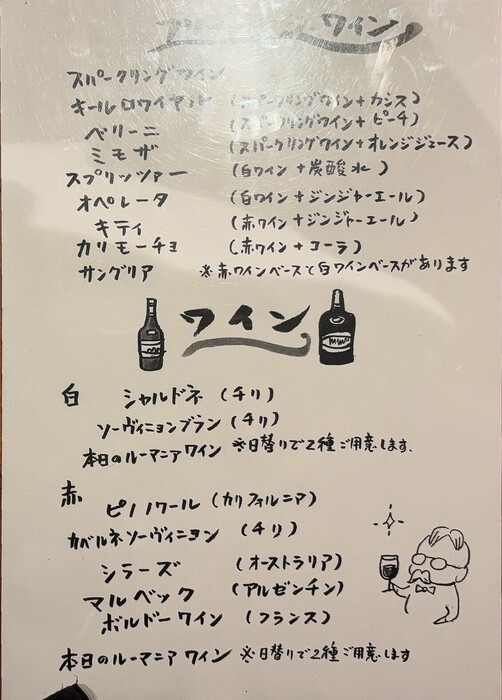 ワイン
スパークリングワイン
キールロワイヤル (スパークリングワイン+カシス)
ベリーニ (スパークリングワイン+ピーチ)
ミモザ (スパークリングワイン+オレンジジュース)
スプリッツァー (白ワイン+炭酸水)
オペレータ (白ワイン+ジンジャーエール)
キティ (赤ワイン+ジンジャーエール)
カリモーチョ (赤ワイン+コーラ)
サングリア ※赤ワインベースと白ワインベースがあります
ワイン
白 シャルドネ (チリ)
ソーヴィニョンブラン (チリ)
本日のルーマニアワイン ※日替りで2種ご用意します.
赤 ピノノワール (カリフォルニア)
カベルネソーヴィニヨン (チリ)
シラーズ (オーストラリア)
マルベック (アルゼンチン)
ボルドーワイン (フランス)
本日のルーマニアワイン ※日替りで2種ご用意します